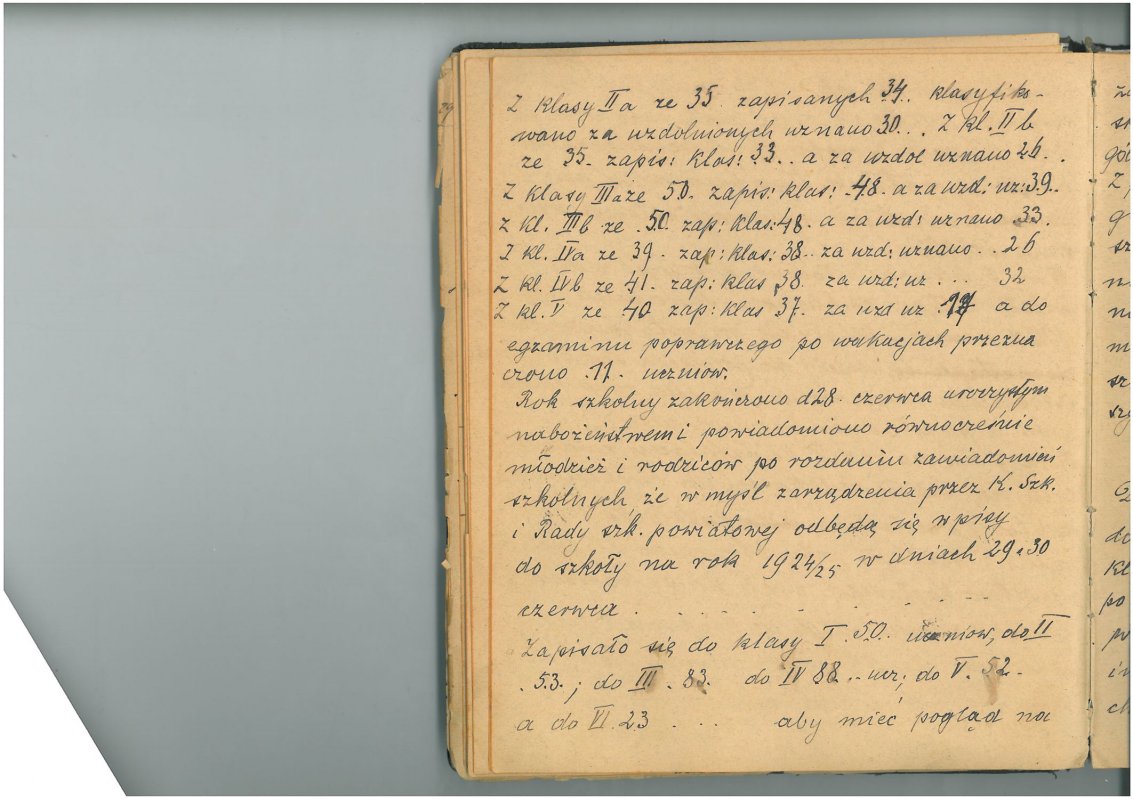 Z klasy IIa ze 35 zapisanych 34. klasyfiko-
wano za uzdolnionych uznano 30... Z kl. IIb
ze 35. zapis: klas: 33.. a za uzdol uznano 26..
Z klasy IIIa ze 50. zapis: klas: .48. a za uzd: uz: 39..
Z kl. IIIb ze .50. zap: klas: 48. a za uzd: uznano .33.
Z kl. IVa ze 39. zap: klas: 38.. za uzd: uznano.. 26
Z kl. IVb ze 41. zap: klas 38. za uzd: uz ... 32
Z kl. V ze 40 zap: klas 37. za uzd uz a do
egzaminu poprawczego po wakacjach przezna
czono .11. uczniów.
Rok szkolny zakończono d 28. czerwca uroczystym
nabożeństwem i powiadomiono równocześnie
młodzież i rodziców po rozdaniu zawiadomień
szkolnych, że w myśl zarządzenia przez K. Szk.
i Rady szk. powiatowej odbędą się wpisy
do szkoły na rok 1924/25 w dniach 29 i 30
czerwca . . . . . . . . .
Zapisało się do klasy I .50. uczniow, do II
.53.; do III . 83. do IV 88... ucz; do V. 52.
a do VI. 23 ... aby mieć pogląd na